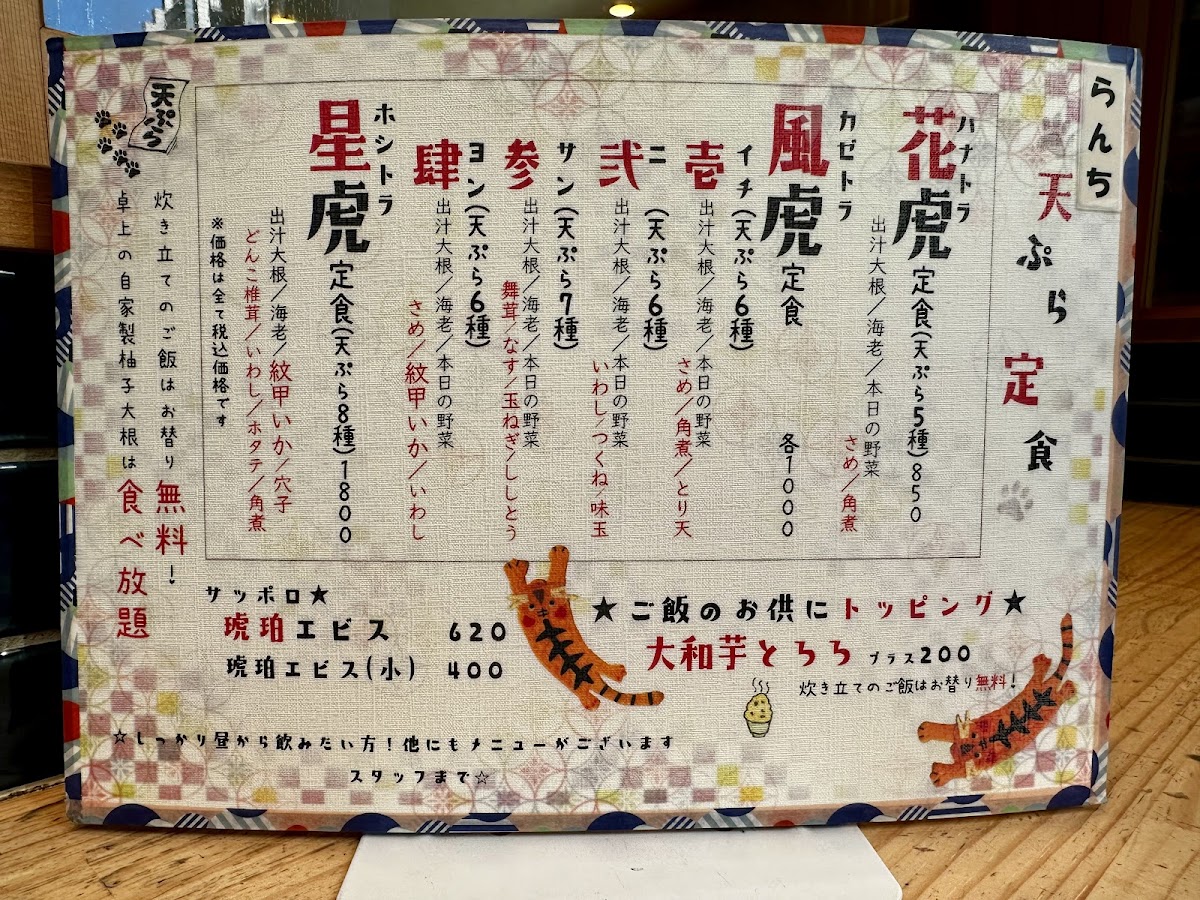 らんち
天ぷら定食
ハナトラ
花虎定食(天ぷら5種)850
出汁大根/海老/本日の野菜
さめ/角煮
カゼトラ
風虎定食 各1000
イチ(天ぷら6種)
壱
出汁大根/海老/本日の野菜
さめ/角煮/とり天
ニ(天ぷら6種)
弐
出汁大根/海老/本日の野菜
いわし/つくね/味玉
サン(天ぷら7種)
参
出汁大根/海老/本日の野菜
舞茸/なす/玉ねぎ/ししとう
ヨン(天ぷら6種)
肆
出汁大根/海老/本日の野菜
さめ/紋甲いか/いわし
ホシトラ
星虎定食(天ぷら8種)1800
出汁大根/海老/紋甲いか/穴子
どんこ椎茸/いわし/ホタテ/角煮
※価格は全て税込価格です
天ぷら
炊き立てのご飯はお替り無料!
卓上の自家製柚子大根は食べ放題
サッポロ★
琥珀エビス 620
琥珀エビス(小) 400
★ご飯のお供にトッピング★
大和芋とろろ プラス200
炊き立てのご飯はお替り無料!
☆しっかり昼から飲みたい方!他にもメニューがございます
スタッフまで☆